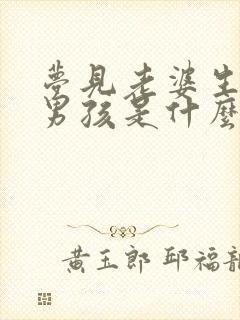 夢見老婆生
男孩是什麼
黃玉郎 邱福龍